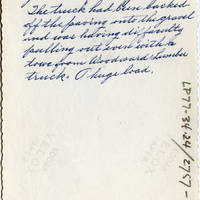 The truck had been backed
off the paving onto the gravel
and was having difficulty
pulling out even with a
tow from Woodward lumber
truck. A huge load.
LP77-34-24/2757-
VELOX
VELOX